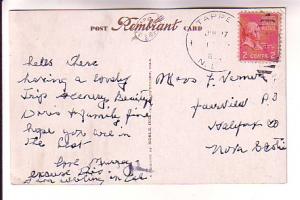 POST Rembrant CARD
TAPPE
N.Y.
2 CENTS 2
Hello There
having a lovely
Trip Scenery Beautiful
Doris & family fine
hope you are in
the Best
Love Murray
excuse this
am writing in Car
Miss F Vernon
Fairview P O
Halifax Co
Nova Scotia